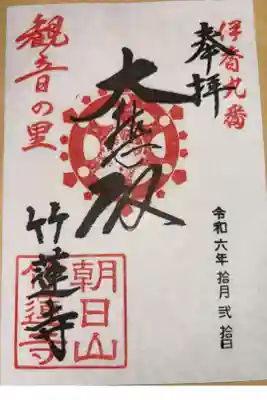 伊香九番
奉拝
令和六年 拾月 弐拾日
大悲殿
観音の里
竹蓮寺
朝日山